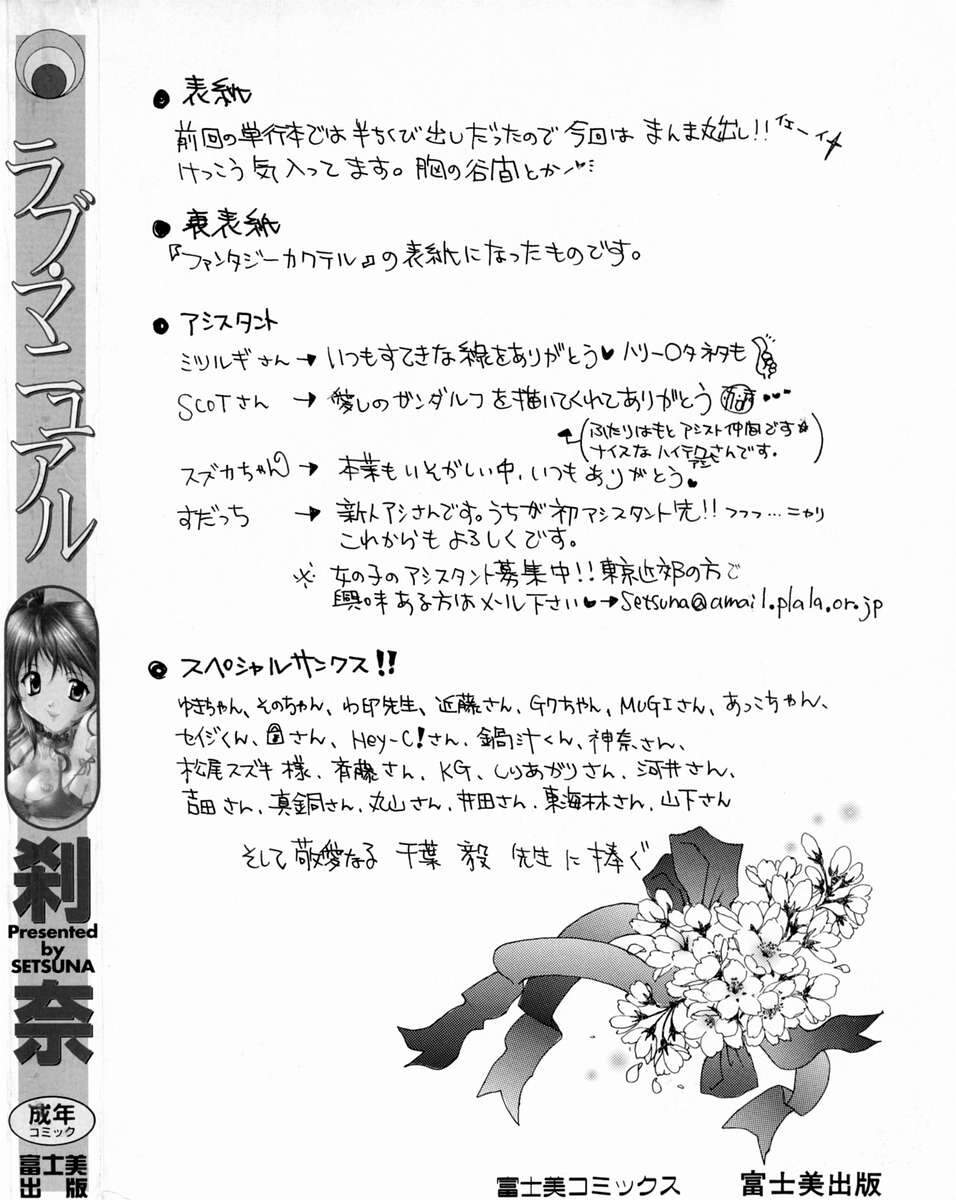 ラブ・マニュアル
刹奈
Presented
by
SETSUNA
成年
コミック
富士美
出版
● 表紙
前回の単行本では半ちくび出しだったので今回は まんま丸出し!! イエーイ
けっこう気入ってます。胸の谷間とか
● 裏表紙
『ファンタジーカクテル』の表紙になったものです。
● アシスタント
ミツルギさん → いつもすてきな線をありがとう♥ ハリー〇タネタも
SCOTさん → 愛しのガンダルフを描いてくれてありがとう
(ふたりはもとアシスト仲間です
ナイスなハイテクアシさんです。)
スズカちゃん → 本業もいそがしい中、いつもありがとう♥
すだっち → 新人アシさんです。うちが初アシスタント先!! フフフ…ニヤリ
これからもよろしくです。
※ 女の子のアシスタント募集中!! 東京近郊の方で
興味ある方はメール下さい♥→setsuna@amail.plala.or.jp
● スペシャルサンクス!!
ゆきちゃん、そのちゃん、わ印先生、近藤さん、Gクちゃん、MUGIさん、あっこちゃん、
セイジくん、さん、Hey-C!さん、鍋汁くん、神奈さん、
松尾スズキ様、斉藤さん、KG、しりあがりさん、河井さん、
吉田さん、真銅さん、丸山さん、井田さん、東海林さん、山下さん
そして敬愛なる 千葉 毅 先生に捧ぐ
富士美コミックス 富士美出版